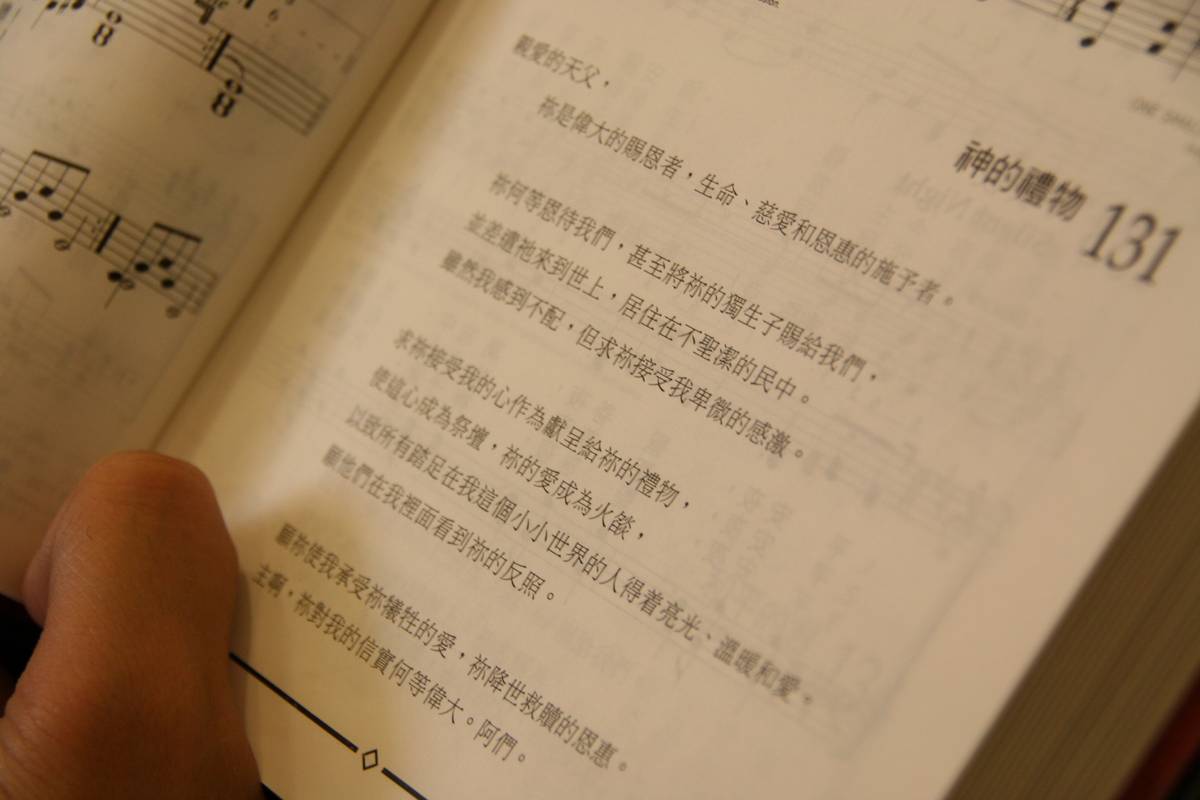 神的禮物 131
親愛的天父，
祢是偉大的賜恩者，生命、慈愛和恩惠的施予者。
祢何等恩待我們，甚至將祢的獨生子賜給我們，
並差遣祂來到世上，居住在不聖潔的民中。
雖然我感到不配，但求祢接受我卑微的感激。
求祢接受我的心作為獻呈給祢的禮物，
使這心成為祭壇，祢的愛成為火燄，
以致所有踏足在我這個小小世界的人得着亮光、溫暖和愛，
願他們在我裡面看到祢的反照。
願祢使我承受祢犧牲的愛，祢降世救贖的恩惠。
主啊，祢對我的信實何等偉大。阿們。